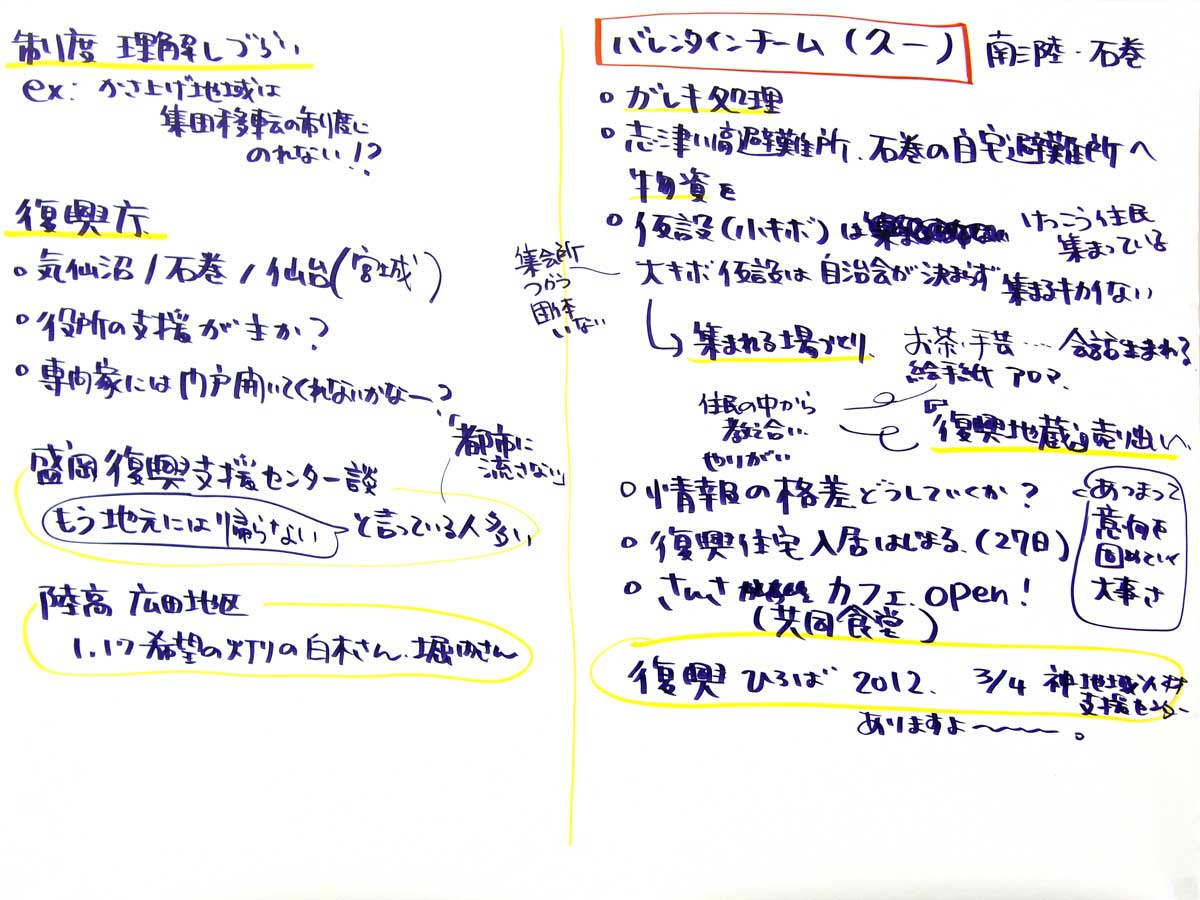 制度 理解しづらい
ex: かさ上げ地域は
集団移転の制度に
のれない!?
復興庁
気仙沼/石巻/仙台(宮城)
役所の支援が主か?
専門家には門戸開いてくれないかなー?
「都市に
流さない」
盛岡復興支援センター談
もう地元には帰らない と言っている人多い
陸高 広田地区
1.17希望の灯りの白木さん、堀内さん
バレンタインチーム(久一) 南三陸・石巻
ガレキ処理
志津川高避難所、石巻の自宅避難所へ
物資を
仮設(小キボ)は けっこう住民
集まっている
集会所
つかう
団体
いない
大キボ仮設は自治会が決まらず集まるキカイない
集まれる場づくり お茶・手芸… 会話生まれる
絵手紙 アロマ、
住民の中から
教え合い
やりがい
『復興地蔵』売出しへ
情報の格差どうしていくか?
復興住宅入居はじまる、(27日)
カフェ open!
(共同食堂)
あつまって
意向を
固めていく
大事さ
復興ひろば 2012、 3/4 神 地域人材
支援センター
ありますよ〜。